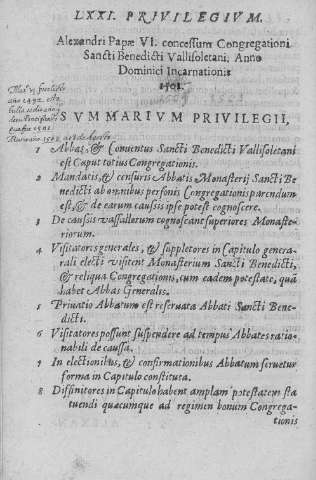 LXXI. PRIVILEGIVM.
Alexandri Papæ VI. concessum Congregationi
Sancti Benedicti Vallisoletani, Anno
Dominici Incarnationis
1501.
año 1492
SVMMARIVM PRIVILEGII,
1 Abbas, & Conuentus Sancti Benedicti Vallisoletani
est Caput totius Congregationis.
2 Mandatis, & censuris Abbatis Monasterij Sancti Be
nedicti ab omnibus personis Congregationis parendum
est, & de earum causis ipse potest cognoscere.
3 De causis vassallorum cognoscant superiores Monaste-
riorum.
4 Visitatores generales, & suppletores in Capitulo genera-
rali electi visitent Monasterium Sancti Benedicti,
& reliqua Congregationis, cum eadem potestate, quã
habet Abbas Generalis.
5 Priuatio Abbatum est reseruata Abbati Sancti Bene-
dicti.
6 Visitatores possunt suspendere ad tempus Abbates ratio-
nabili de causa.
7 In electionibus, & confirmationibus Abbatum seruetur
forma in Capitulo constituta.
8 Diffinitores in Capitulo habent amplam potestatem sta
tuendi quæcumque ad regimen bonum Congrega-
tionis